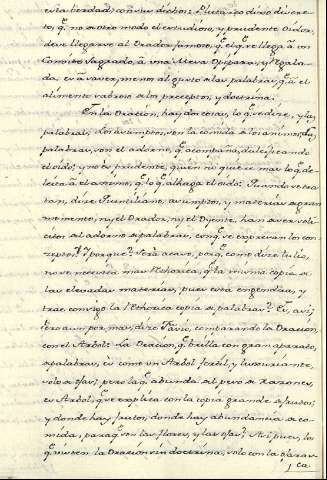 esta verdad) con su dicho: Plutarco dixo discre-
to, q.e no de otro modo el estudioso, y prudente Oidor,
deve llegarse al Orador famoso, q.e el q.e se llega à un
Convite sagrado, à una Mesa Opipara, y Regala-
da, es à saver, menos al gusto de las palabras, q.e à el
alimento sabroso de los preceptos, y doctrina.
En la Oracion, hay dos cosas, lo q.e se dice, y las
palabras. Los asumptos, son la comida de los animos, las
palabras, son el adorno, q.e acompaña, dulcificando
el oido; y no es prudente, quien no quiere mas lo q.e de-
leita à el animo, q.e lo q.e alhaga el oido. Quando se tra-
tan, dice Quintiliano, asumptos, y materias de gran
momento, ni el Orador, ni el Oyente, han de ser soli-
citos al adorno de palabras, con q.e se expresan los con-
zeptos. Y porque? Será acaso, porq.e como dice Tulio,
no se necesita mas Rethorica, q.e la misma copia de
las elevadas materias, pues esta engendra, y
trae consigo la Rethorica copia de palabras? Es, asi;
pero aun por mas, dice Fabio, comparando la Oracion,
con el Arbol: La Oracion, q.e brilla con gran aparato,
de palabras, es como un Arbol fertil, y luxuriante,
solo de ojas; pero la q.e abunda al peso de Razones,
es Arbol, q.e se explica con la copia grande de frutos;
y donde hay frutos, donde hay abundancia de co-
mida, paraq.e son las flores, y las ojas? Asi pues, los
q.e miden la Oracion sin doctrina, solo con la
ca-